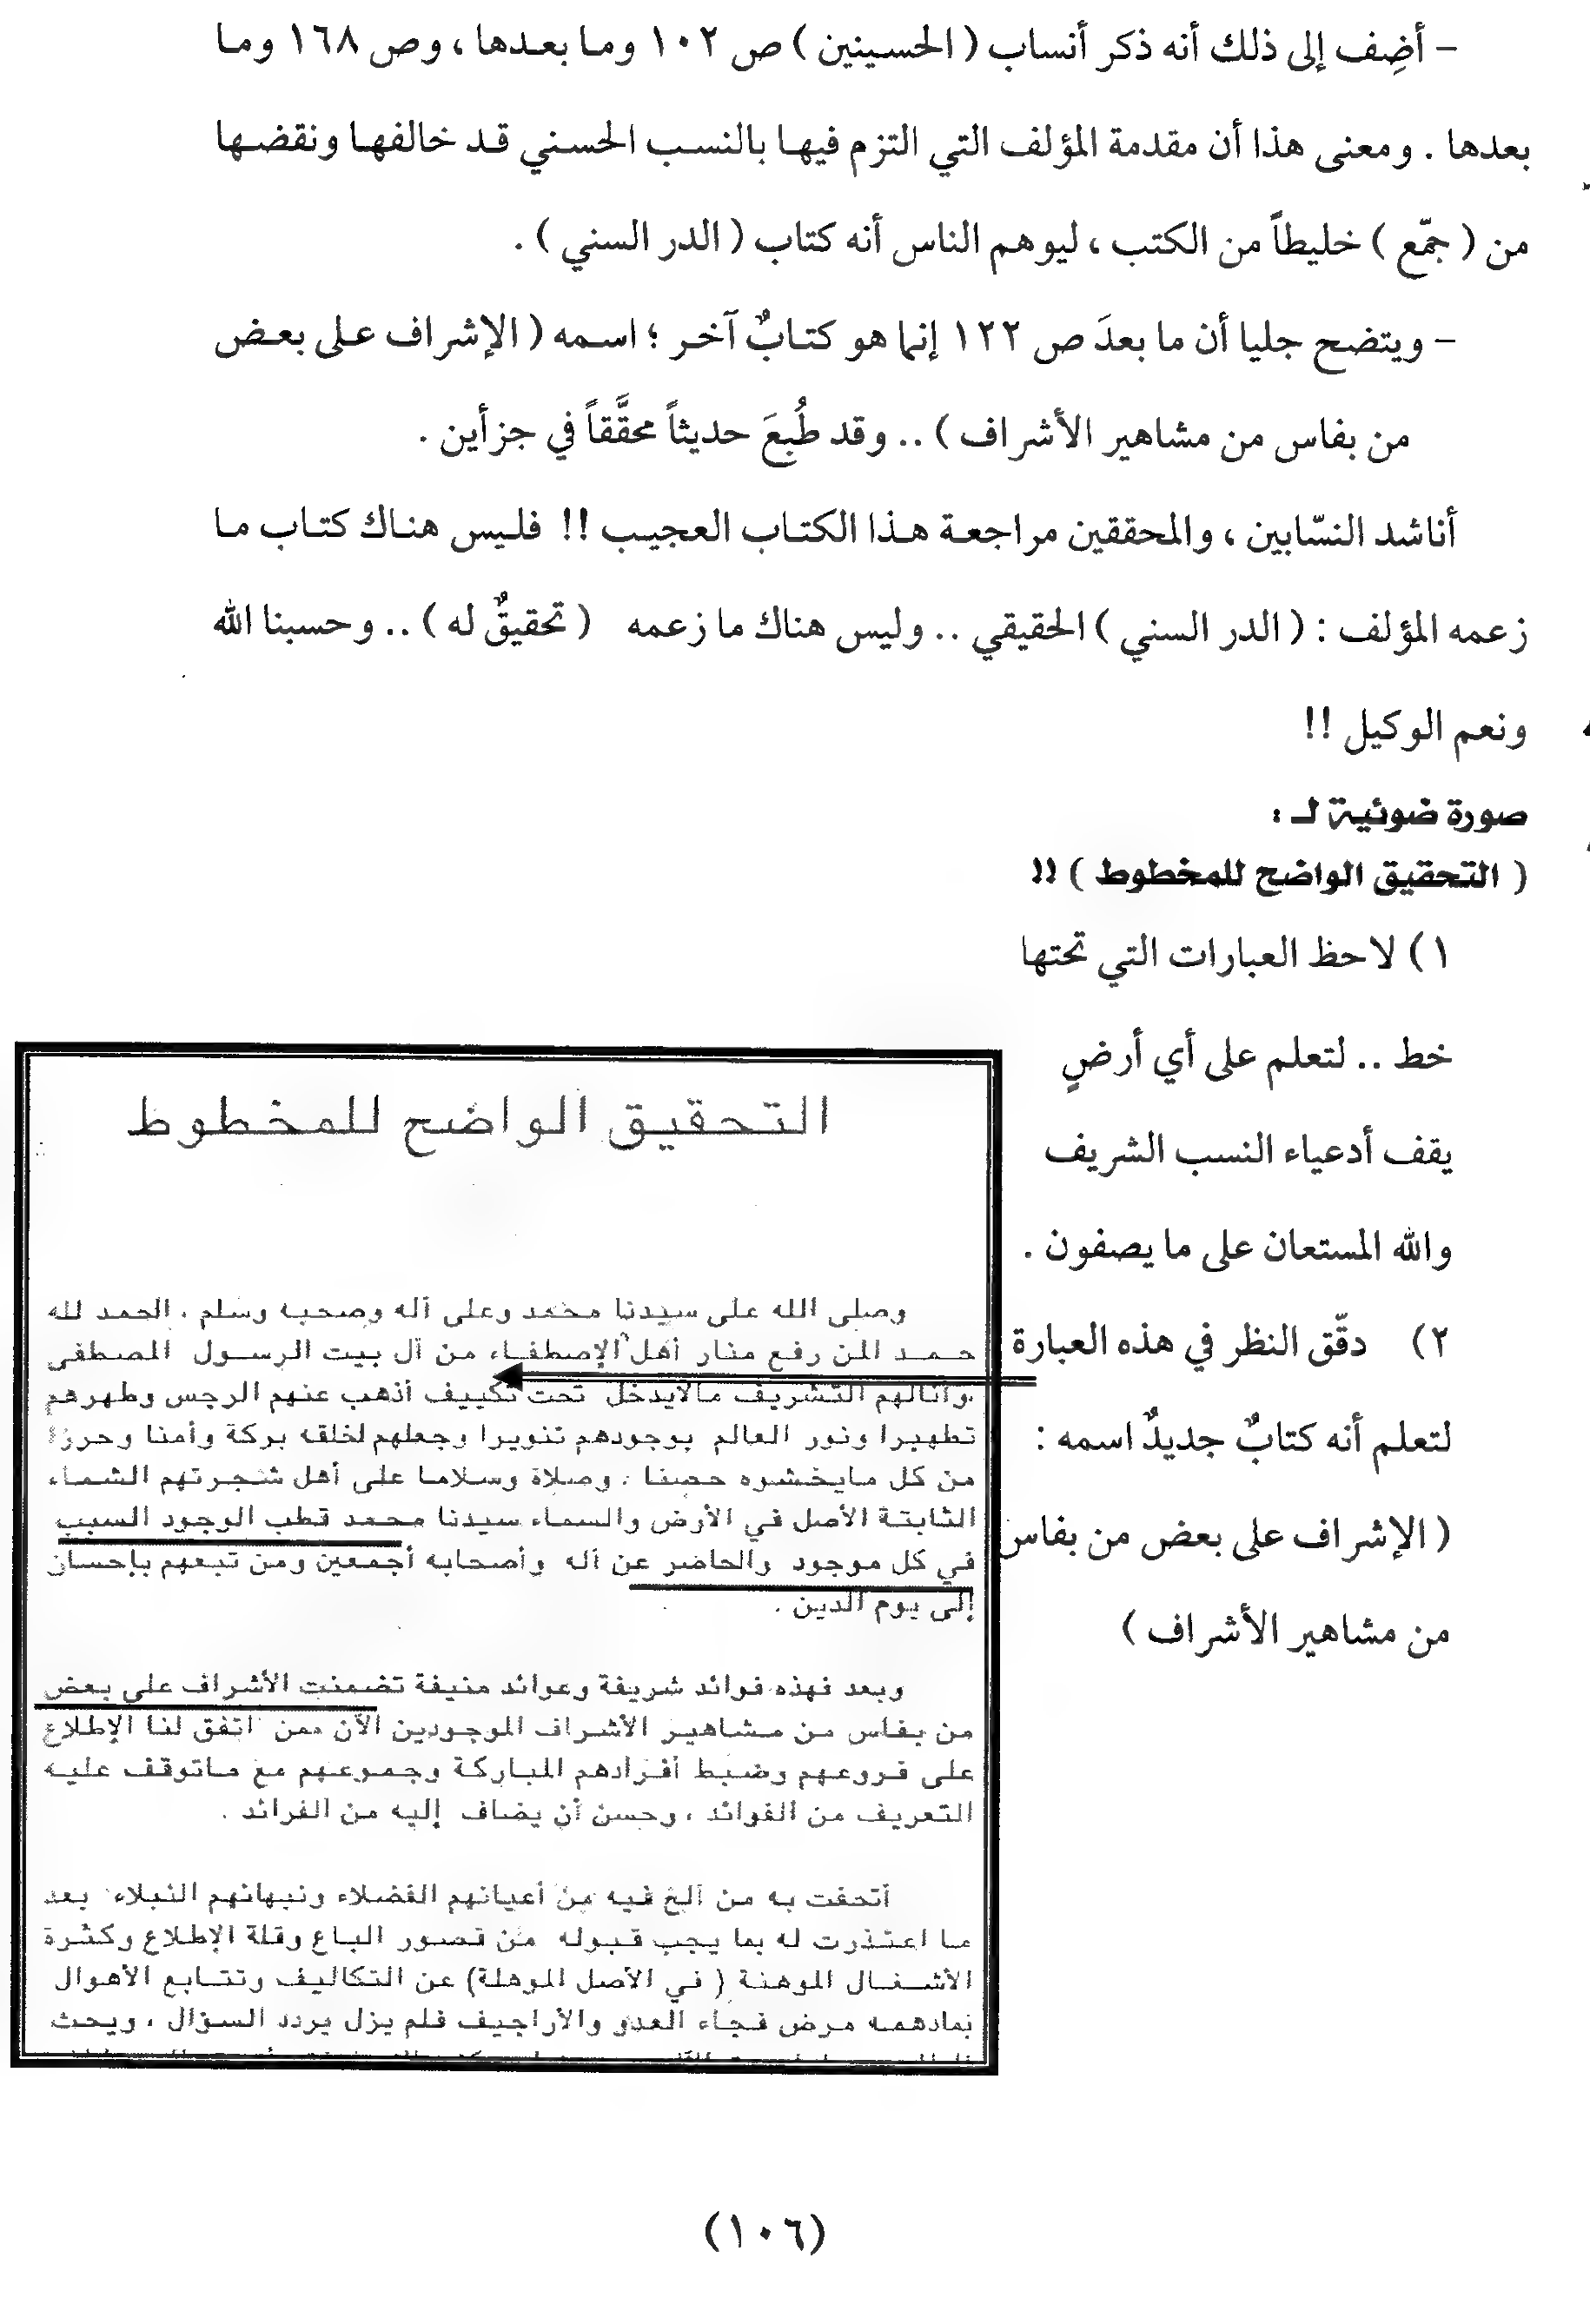 – أضِف إلى ذلك أنه ذكر أنساب ( الحسينين ) ص ١٠٢ وما بعدها ، وص ١٦٨ وما
بعدها . ومعنى هذا أن مقدمة المؤلف التي التزم فيها بالنسب الحسني قد خالفها ونقضها
من ( جمّع ) خليطاً من الكتب ، ليوهم الناس أنه كتاب ( الدر السني ) .
– ويتضح جليا أن ما بعدَ ص ١٢٢ إنما هو كتابٌ آخر ؛ اسمه ( الإشراف على بعض
من بفاس من مشاهير الأشراف ) .. وقد طُبِعَ حديثاً محقَّقاً في جزأين .
أناشد النسّابين ، والمحققين مراجعة هذا الكتاب العجيب !! فليس هناك كتاب ما
زعمه المؤلف : ( الدر السني ) الحقيقي .. وليس هناك ما زعمه ( تحقيقٌ له ) .. وحسبنا الله
ونعم الوكيل !!
صورة ضوئية لـ :
( التحقيق الواضح للمخطوط ) !!
١ ) لاحظ العبارات التي تحتها
خط .. لتعلم على أي أرضٍ
يقف أدعياء النسب الشريف
والله المستعان على ما يصفون .
٢ ) دقّق النظر في هذه العبارة
لتعلم أنه كتابٌ جديدٌ اسمه :
( الإشراف على بعض من بفاس
من مشاهير الأشراف )
التحقيق الواضح للمخطوط
وصلى الله على سيدنا محمد وعلى آله وصحبه وسلم ، الحمد لله
حمد المن رفع منار أهل الإصطفاء من آل بيت الرسول المصطفى
وأنالهم التشريف مالايدخل تحت تكييف أذهب عنهم الرجس وطهرهم
تطهيرا ونور العالم بوجودهم تنويرا وجعلهم لخلقه بركة وأمنا وحرزا
من كل مايخشوه حصنا . وصلاة وسلاما على أهل شجرتهم الشماء
الثابتة الأصل في الأرض والسماء سيدنا محمد قطب الوجود السبب
في كل موجود والحاضر عن آله وأصحابه أجمعين ومن تبعهم بإحسان
إلى يوم الدين .
وبعد فهذه فوائد شريفة وعوائد منيفة تضمنت الأشراف على بعض
من بفاس من مشاهير الأشراف الموجودين الآن ممن اتفق لنا الإطلاع
على فروعهم وضبط أفرادهم المباركة وجموعهم مع ماتوقف عليه
التعريف من الفوائد ، وحسن أن يضاف إليه من الفرائد .
أتحفت به من ألح فيه من أعيانهم الفضلاء ونبهائهم النبلاء بعد
ما اعتذرت له بما يجب قبوله من قصور الباع وقلة الإطلاع وكثرة
الأشغال الموهنة ( في الأصل الموهلة) عن التكاليف وتتابع الأهوال
بمادهمه مرض فجاء العدو والأراجيف فلم يزل يردد السؤال ، ويحث
(١٠٦)